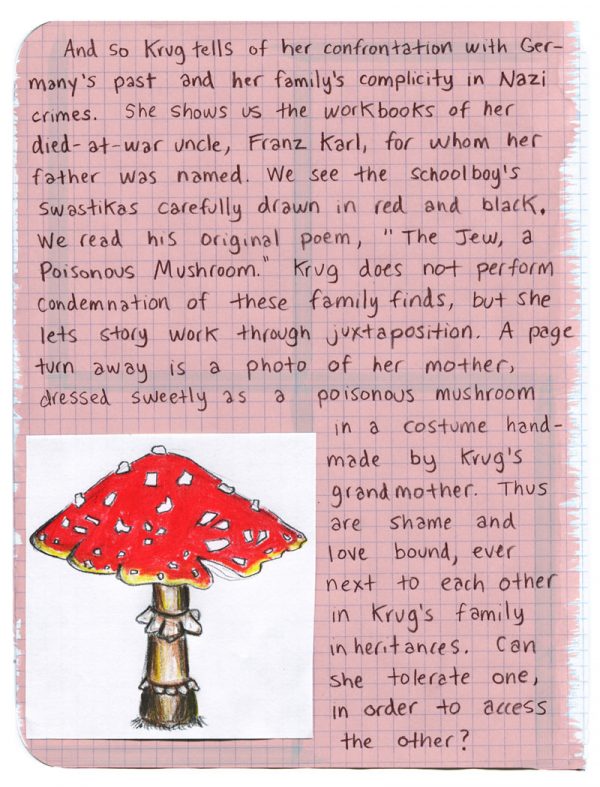 And so Krug tells of her confrontation with Ger-
many's past and her family's complicity in Nazi
crimes. She shows us the workbooks of her
died-at-war uncle, Franz Karl, for whom her
father was named. We see the schoolboy's
swastikas carefully drawn in red and black.
We read his original poem, "The Jew, a
Poisonous Mushroom." Krug does not perform
condemnation of these family finds, but she
lets story work through juxtaposition. A page
turn away is a photo of her mother,
dressed sweetly as a poisonous mushroom
in a costume hand-
made by Krug's
grandmother. Thus
are shame and
love bound, ever
next to each other
in Krug's family
inheritances. Can
she tolerate one,
in order to access
the other?